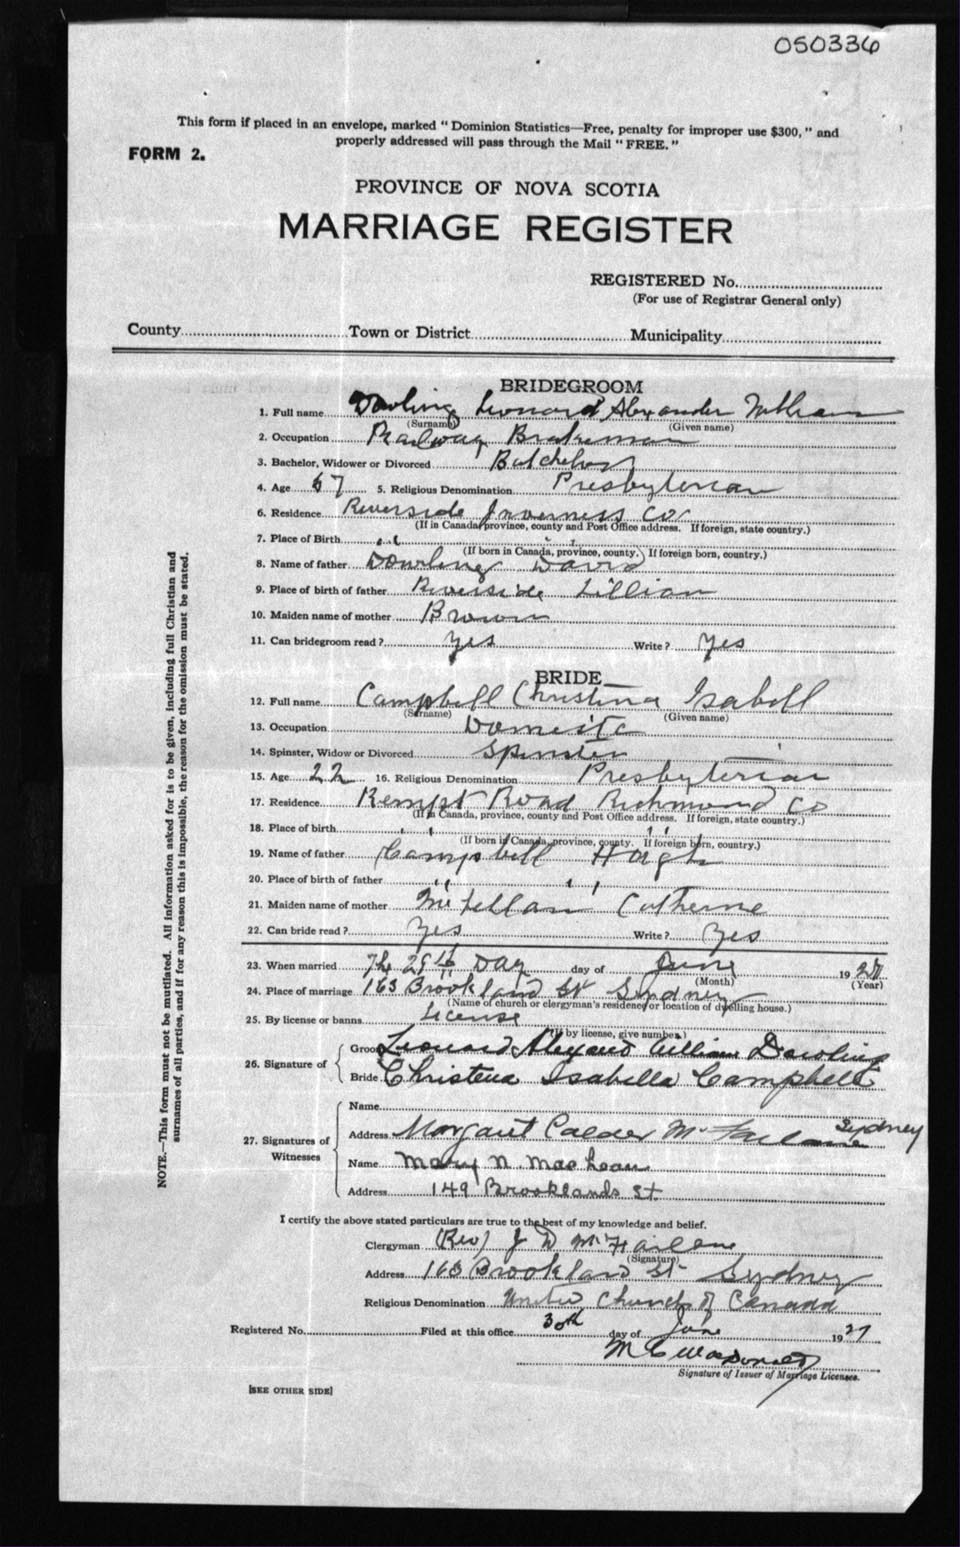 050336
This form if placed in an envelope, marked "Dominion Statistics—Free, penalty for improper use $300," and
properly addressed will pass through the Mail "FREE."
FORM 2.
PROVINCE OF NOVA SCOTIA
MARRIAGE REGISTER
REGISTERED No.
(For use of Registrar General only)
County Town or District Municipality
BRIDEGROOM
1. Full name Dowling Leonard Alexander William
(Surname) (Given name)
2. Occupation Railway Brakeman
3. Bachelor, Widower or Divorced Batchelor
4. Age 5. Religious Denomination Presbyterian
6. Residence Riverside Inverness Co
(If in Canada, province, county and Post Office address. If foreign, state country.)
7. Place of Birth " "
(If born in Canada, province, county. If foreign born, country.)
8. Name of father Dowling David
9. Place of birth of father Riverside Lillian
10. Maiden name of mother Brown
11. Can bridegroom read? Yes Write? Yes
BRIDE
12. Full name Campbell Christina Isabell
(Surname) (Given name)
13. Occupation Domestic
14. Spinster, Widow or Divorced Spinster
15. Age 22 16. Religious Denomination Presbyterian
17. Residence Kempt Road Richmond Co
(If in Canada, province, county and Post Office address. If foreign, state country.)
18. Place of birth " "
(If born in Canada, province, county. If foreign born, country.)
19. Name of father Campbell Hugh
20. Place of birth of father " "
21. Maiden name of mother Catherine
22. Can bride read? Yes Write? Yes
23. When married The 29th Day day of June 1927
(Month) (Year)
24. Place of marriage 163 Brookland St Sydney
(Name of church or clergyman's residence or location of dwelling house.)
25. By license or banns License
(If by license, give number.)
26. Signature of
Groom Leonard William Dowling
Bride Christena Isabella Campbell
27. Signatures of Witnesses
Name
Address Margaret Calder McFarlane Sydney
Name Mary N MacLean
Address 149 Brooklands St.
I certify the above stated particulars are true to the best of my knowledge and belief.
Clergyman (Rev) J D McFarlane
(Signature)
Address 163 Brookland St Sydney
Religious Denomination United Church of Canada
Registered No. Filed at this office 30th day of June 1927
M C MacDonald
Signature of Issuer of Marriage Licenses.
[SEE OTHER SIDE]
NOTE.—This form must not be mutilated. All information asked for is to be given, including full Christian and
surnames of all parties, and if for any reason this is impossible, the reason for the omission must be stated.